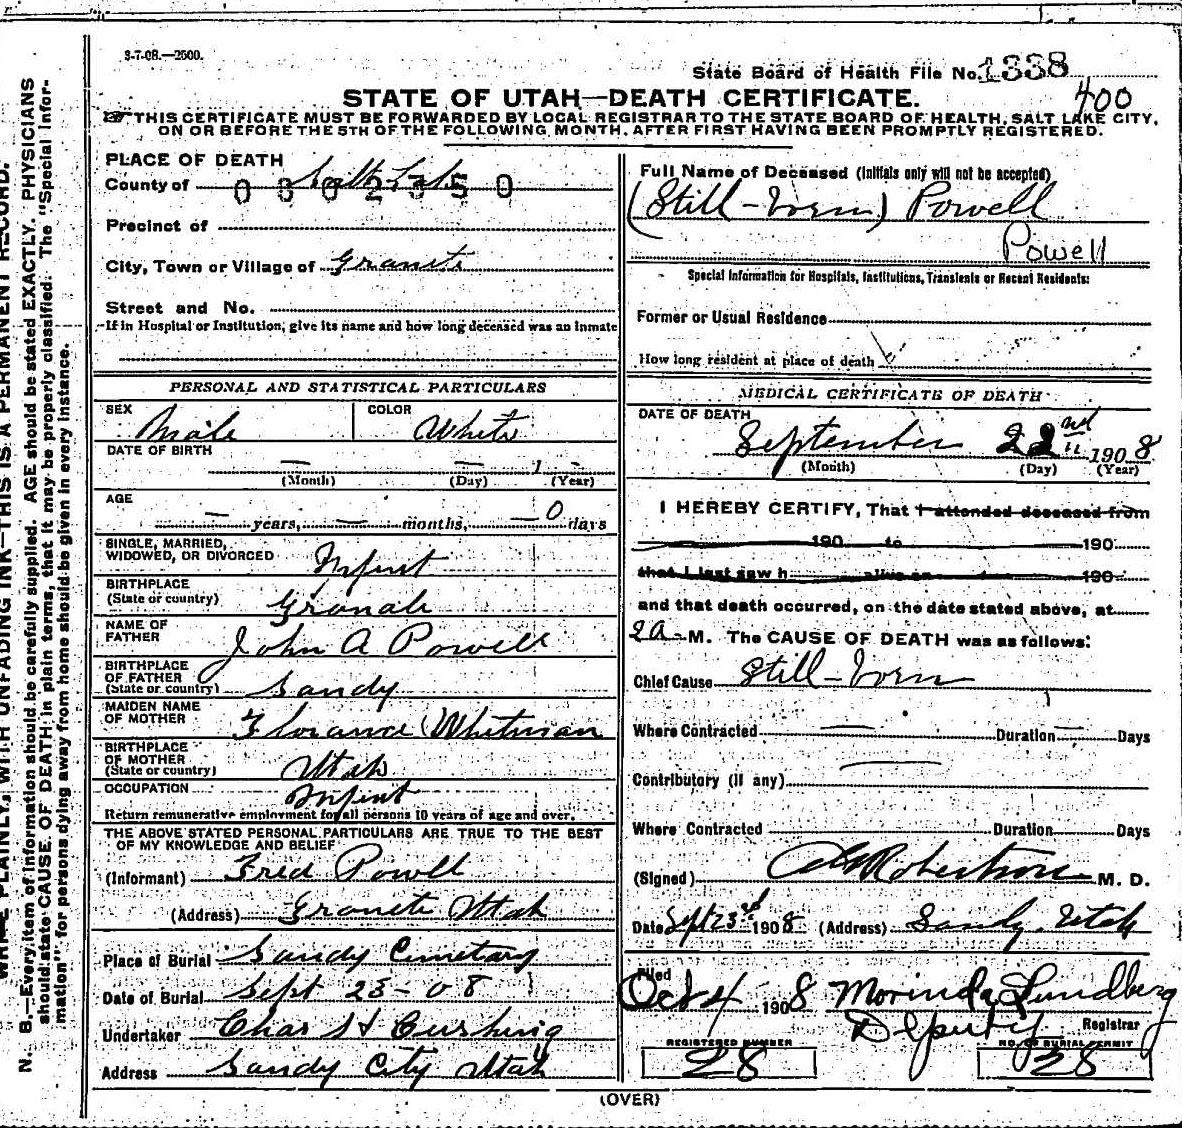 3-7-08.—2500.
State Board of Health File No. 1338
400
STATE OF UTAH—DEATH CERTIFICATE.
THIS CERTIFICATE MUST BE FORWARDED BY LOCAL REGISTRAR TO THE STATE BOARD OF HEALTH, SALT LAKE CITY,
ON OR BEFORE THE 5TH OF THE FOLLOWING MONTH, AFTER FIRST HAVING BEEN PROMPTLY REGISTERED.
PLACE OF DEATH
County of Salt Lake
0802350
Precinct of
City, Town or Village of Granite
Street and No.
If in Hospital or Institution, give its name and how long deceased was an inmate
PERSONAL AND STATISTICAL PARTICULARS
SEX Male COLOR White
DATE OF BIRTH — — 1 -
(Month) (Day) (Year)
AGE
— years, — months, — 0 days
SINGLE, MARRIED,
WIDOWED, OR DIVORCED Infint
BIRTHPLACE
(State or country) Granate
NAME OF
FATHER John A Powell
BIRTHPLACE
OF FATHER
(State or country) Sandy
MAIDEN NAME
OF MOTHER Florance Whitman
BIRTHPLACE
OF MOTHER
(State or country) Utah
OCCUPATION Infint
Return remunerative employment for all persons 10 years of age and over.
THE ABOVE STATED PERSONAL PARTICULARS ARE TRUE TO THE BEST
OF MY KNOWLEDGE AND BELIEF
(Informant) Fred Powell
(Address) Granite Utah
Place of Burial Sandy Cemetary
Date of Burial Sept 23-08
Undertaker Chas H Cushing
Address Sandy City Utah
Full Name of Deceased (Initials only will not be accepted)
(Still-born) Powell
Powell
Special Information for Hospitals, Institutions, Transients or Recent Residents:
Former or Usual Residence
How long resident at place of death
MEDICAL CERTIFICATE OF DEATH
DATE OF DEATH
September 22nd 1908
(Month) (Day) (Year)
I HEREBY CERTIFY, That I attended deceased from
190 to 190
that I last saw h alive on 190
and that death occurred, on the date stated above, at
2 a-M. The CAUSE OF DEATH was as follows:
Chief Cause Still-born
Where Contracted — Duration — Days
Contributory (if any)
Where Contracted Duration Days
(Signed) Robertson M. D.
Date Sept 23rd 1908 (Address) Sandy, Utah
Filed
Oct 4 1908 Morinda Lundberg
Deputy Registrar
REGISTERED NUMBER
28
NO. OF BURIAL PERMIT
28
(OVER)
WRITE PLAINLY, WITH UNFADING INK—THIS IS A PERMANENT RECORD.
N. B.—Every item of information should be carefully supplied. AGE should be stated EXACTLY. PHYSICIANS
should state CAUSE OF DEATH in plain terms, that it may be properly classified. The "Special Infor-
mation" for persons dying away from home should be given in every instance.